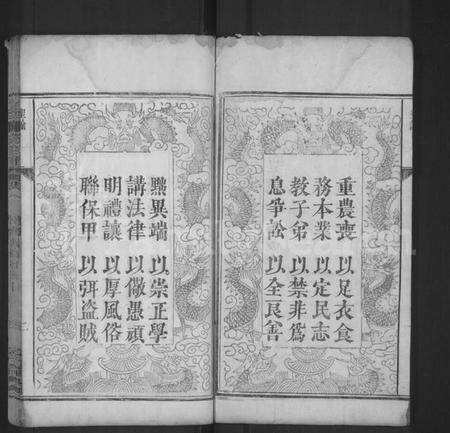 重農喪 以足衣食
務本業 以定民志
教子弟 以禁非爲
息爭訟 以全良善
黜異端 以崇正學
講法律 以儆愚頑
明禮讓 以厚風俗
聯保甲 以弭盜賊